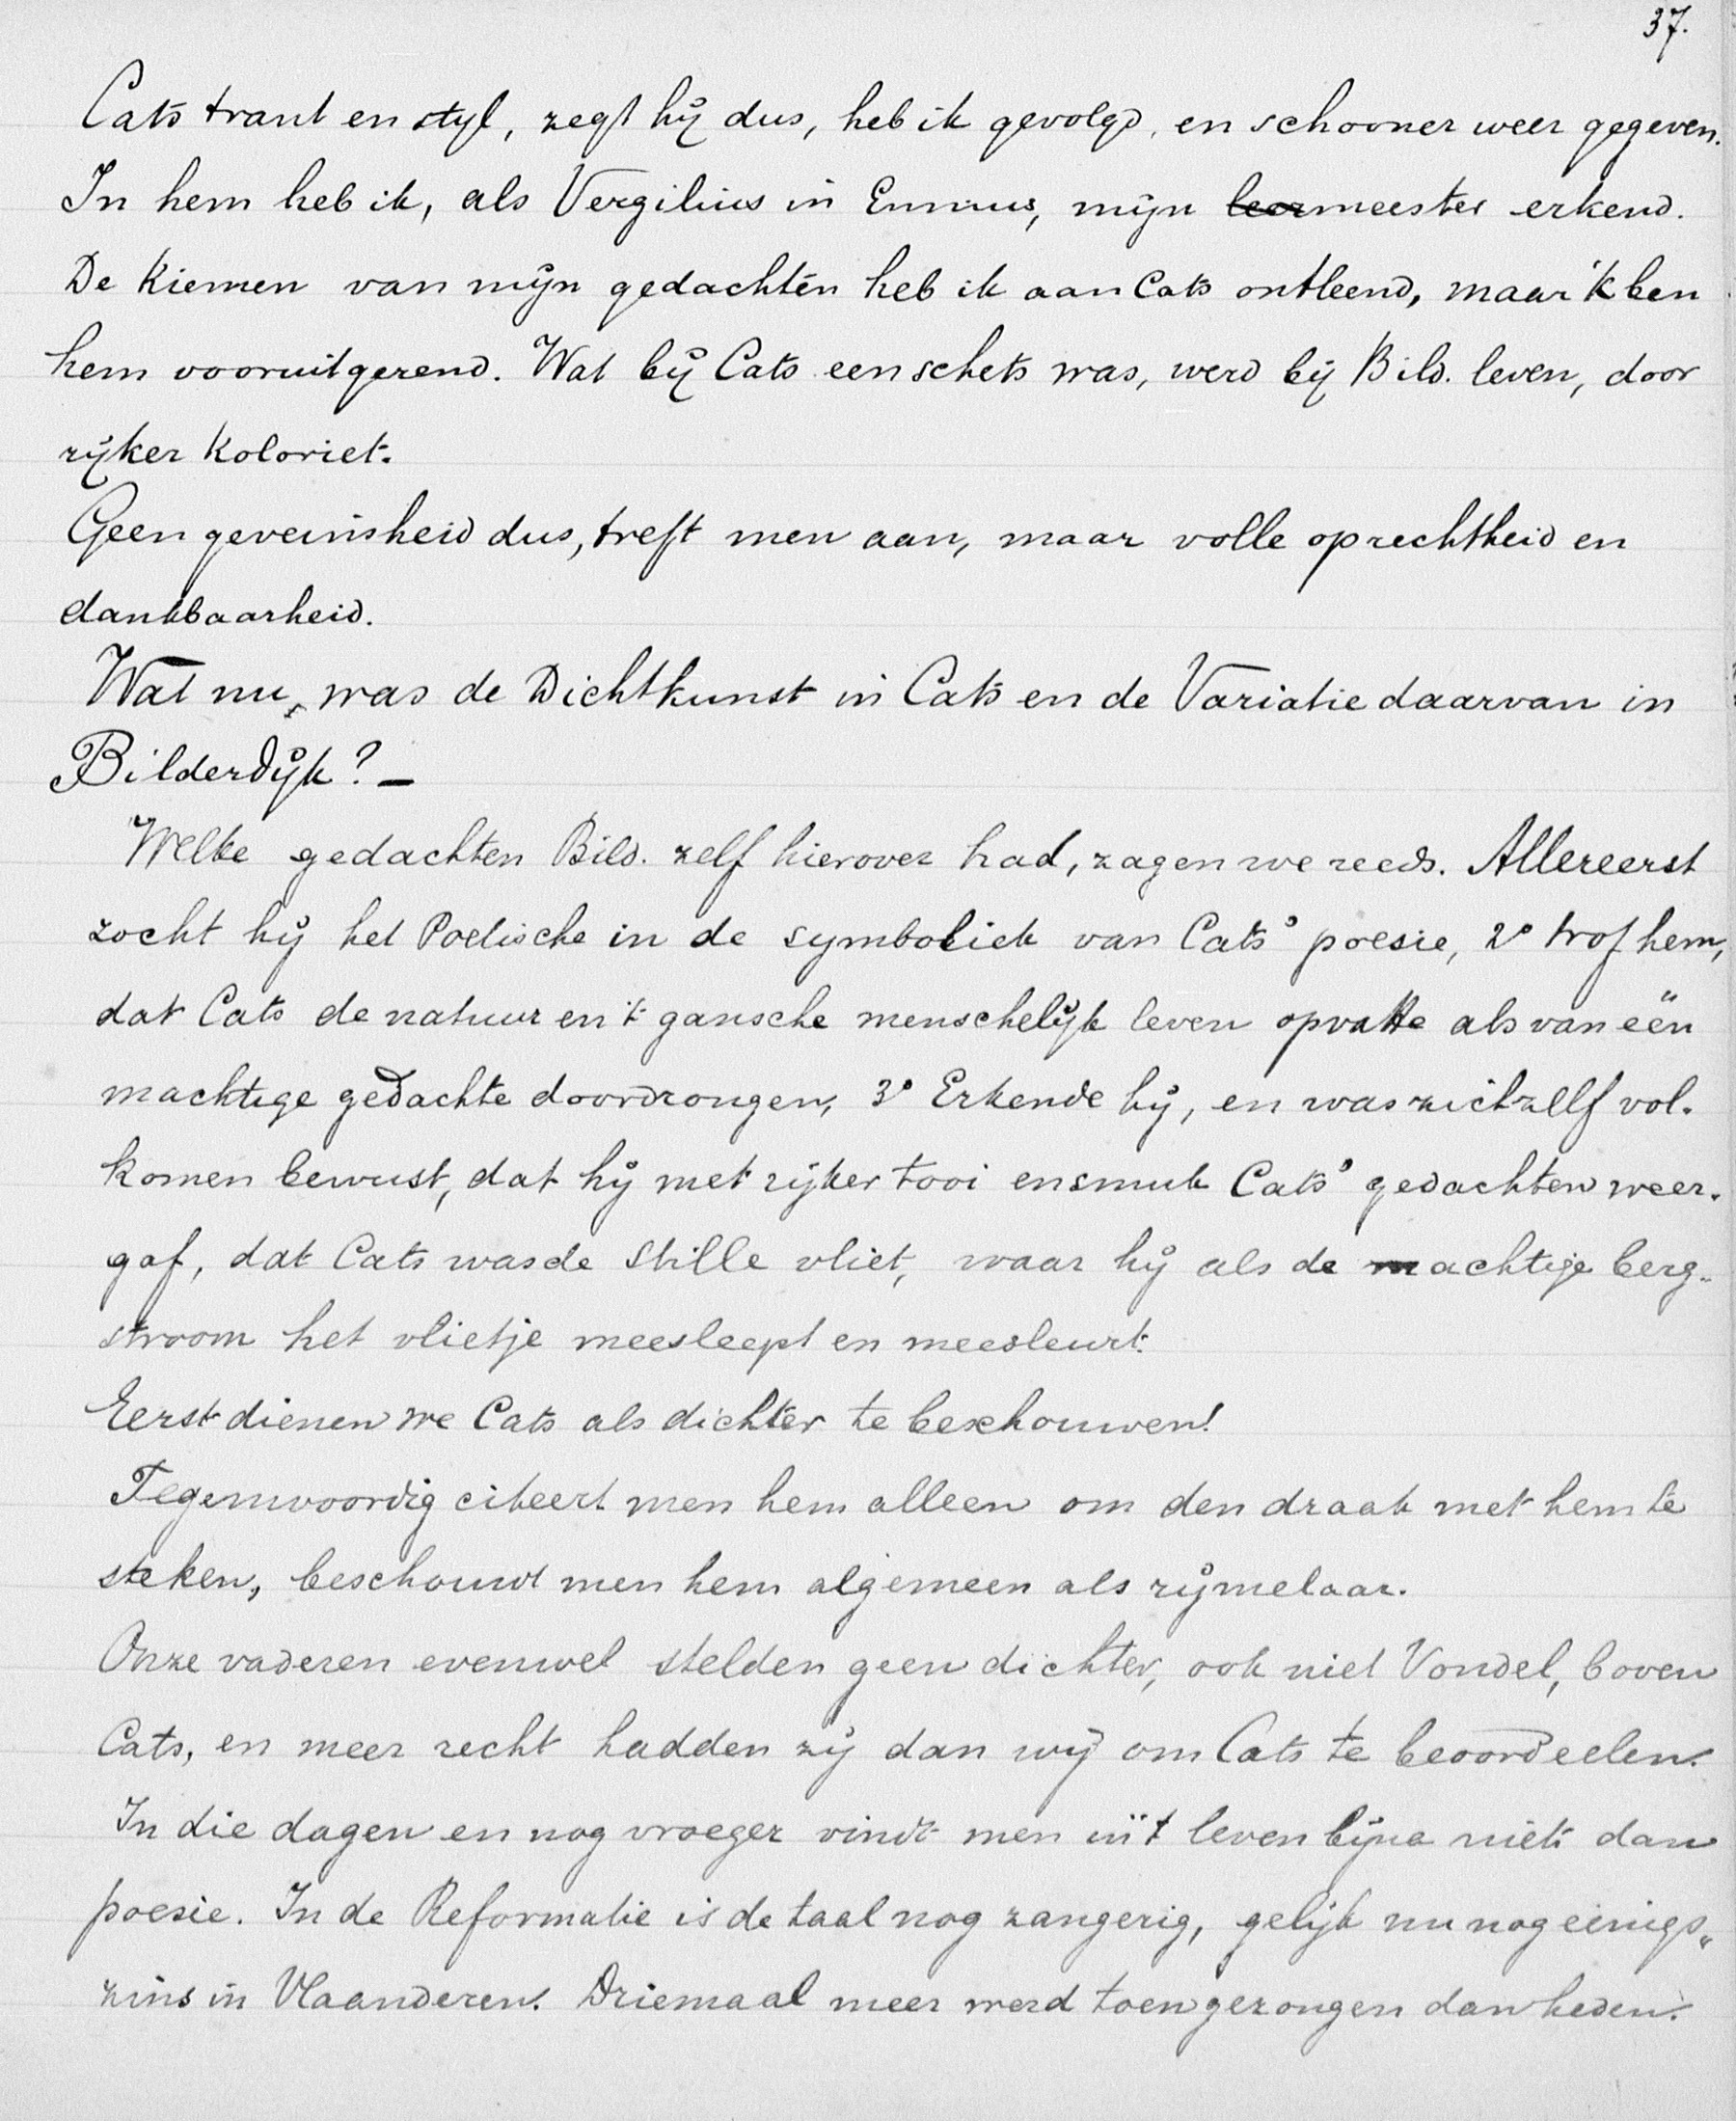 37.
Cats trant en styl, zegt hij dus, heb ik gevolgd, en schooner weer gegeven.
In hem heb ik, als Vergilius in Ennius, mijn leermeester erkend.
De kiemen van mijn gedachten heb ik aan Cats ontleend, maar 'k ben
hem vooruitgerend. Wat bij Cats een schets was, werd bij Bild. leven, door
rijker koloriet.
Geen geveinsheid dus, treft men aan, maar volle oprechtheid en
dankbaarheid.
Wat nu, was de Dichtkunst in Cats en de Variatie daarvan in
Bilderdijk? —
Welke gedachten Bild. zelf hierover had, zagen we reeds. Allereerst
zocht hij het Poetische in de symboliek van Cats' poesie, 2° trof hem,
dat Cats de natuur en 't gansche menschelijk leven opvatte als van één
machtige gedachte doordrongen, 3° Erkende hij, en was zichzelf vol-
komen bewust, dat hij met rijker tooi en smuk Cats' gedachten weer-
gaf, dat Cats was de stille vliet, waar hij als de machtige berg-
stroom het vlietje meesleept en meesleurt.
Eerst dienen we Cats als dichter te beschouwen!
Tegenwoordig citeert men hem alleen om den draak met hem te
steken, beschouwt men hem algemeen als rijmelaar.
Onze vaderen evenwel stelden geen dichter, ook niet Vondel, boven
Cats, en meer recht hadden zij dan wij om Cats te beoordeelen.
In die dagen en nog vroeger vindt men in 't leven bijna niets dan
poesie. In de Reformatie is de taal nog zangerig, gelijk nu nog eenigs„
zins in Vlaanderen. Driemaal meer werd toen gezongen dan heden.